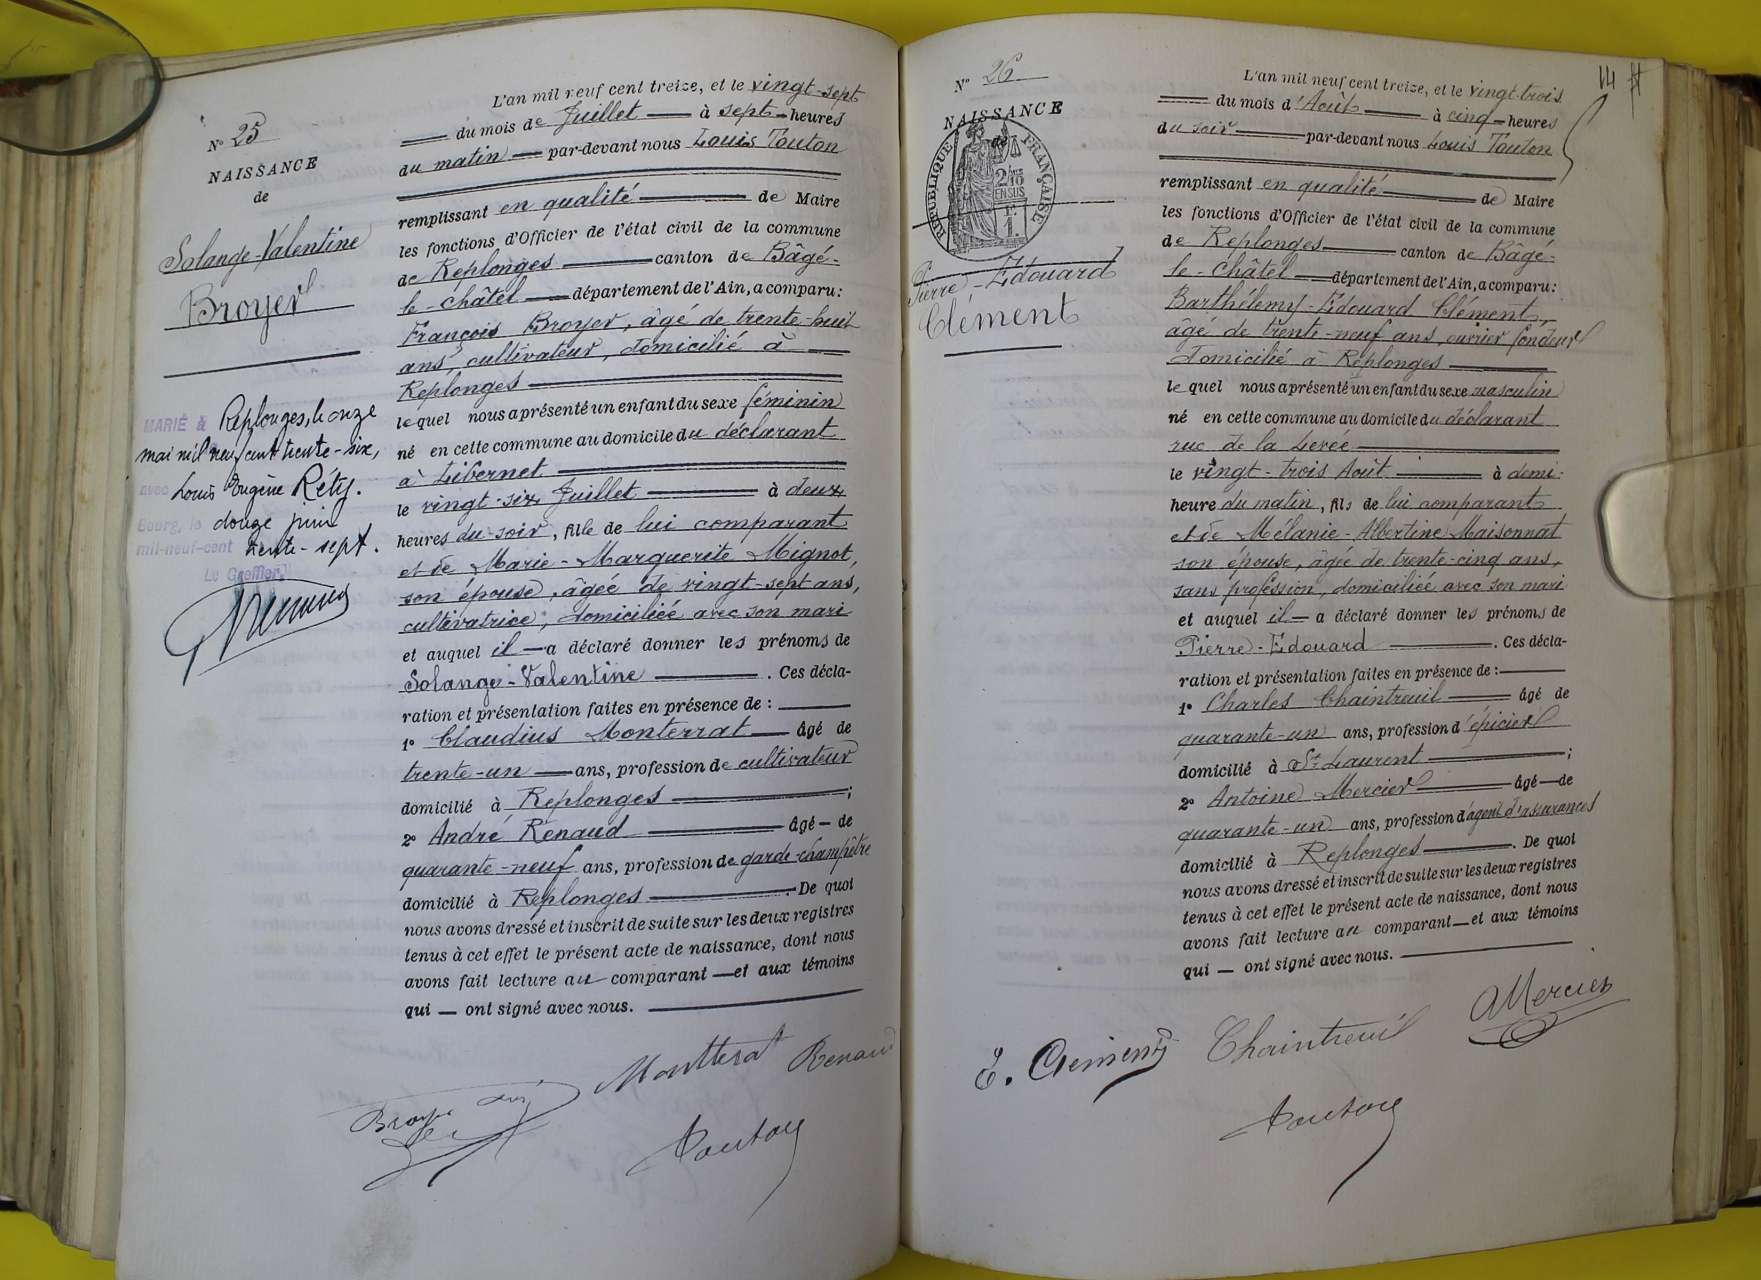 N° 25
NAISSANCE
de
Solange-Valentine
Broyer
MARIÉ à Replonges, le onze
mai mil neuf cent trente-six,
avec Louis Eugène Réty.
Bourg, le douze juin
mil-neuf-cent trente-sept.
Le Greffier,
L'an mil neuf cent treize, et le vingt-sept
du mois de Juillet à sept heures
du matin par-devant nous Louis Touton
remplissant en qualité de Maire
les fonctions d'Officier de l'état civil de la commune
de Replonges canton de Bâgé-
le-Châtel département de l'Ain, a comparu:
François Broyer, âgé de trente-huit
ans, cultivateur, domicilié à
Replonges
lequel nous a présenté un enfant du sexe féminin
né en cette commune au domicile du déclarant
à Libernet
le vingt-six Juillet à deux
heures du soir, fille de lui comparant
et de Marie-Marguerite Mignot,
son épouse, âgée de vingt-sept ans,
cultivatrice, domiciliée avec son mari
et auquel il a déclaré donner les prénoms de
Solange-Valentine. Ces décla-
ration et présentation faites en présence de :
1° Claudius Monterrat âgé de
trente-un ans, profession de cultivateur
domicilié à Replonges ;
2° André Renaud âgé de
quarante-neuf ans, profession de garde-champêtre
domicilié à Replonges. De quoi
nous avons dressé et inscrit de suite sur les deux registres
tenus à cet effet le présent acte de naissance, dont nous
avons fait lecture au comparant et aux témoins
qui ont signé avec nous.
Broyer Montterat Renaud
Touton
14
N° 26
NAISSANCE
de
RÉPUBLIQUE FRANÇAISE
2/10
EN SUS
1.
Pierre-Edouard
Clément
L'an mil neuf cent treize, et le vingt-trois
du mois d'Août à cinq heures
du soir par-devant nous Louis Touton
remplissant en qualité de Maire
les fonctions d'Officier de l'état civil de la commune
de Replonges canton de Bâgé-
le-Châtel département de l'Ain, a comparu:
Barthélemy-Edouard Clément,
âgé de trente-neuf ans, ouvrier fondeur
domicilié à Replonges
lequel nous a présenté un enfant du sexe masculin
né en cette commune au domicile du déclarant
rue de la Levée
le vingt-trois Août à demi-
heure du matin, fils de lui comparant
et de Mélanie-Albertine Maisonnat
son épouse, âgée de trente-cinq ans,
sans profession, domiciliée avec son mari
et auquel il a déclaré donner les prénoms de
Pierre-Edouard. Ces décla-
ration et présentation faites en présence de :
1° Charles Chaintreuil âgé de
quarante-un ans, profession d'épicier
domicilié à St Laurent ;
2° Antoine Mercier âgé de
quarante-un ans, profession d'agent d'assurances
domicilié à Replonges. De quoi
nous avons dressé et inscrit de suite sur les deux registres
tenus à cet effet le présent acte de naissance, dont nous
avons fait lecture au comparant et aux témoins
qui ont signé avec nous.
E. Clément Chaintreuil AMercier
Touton